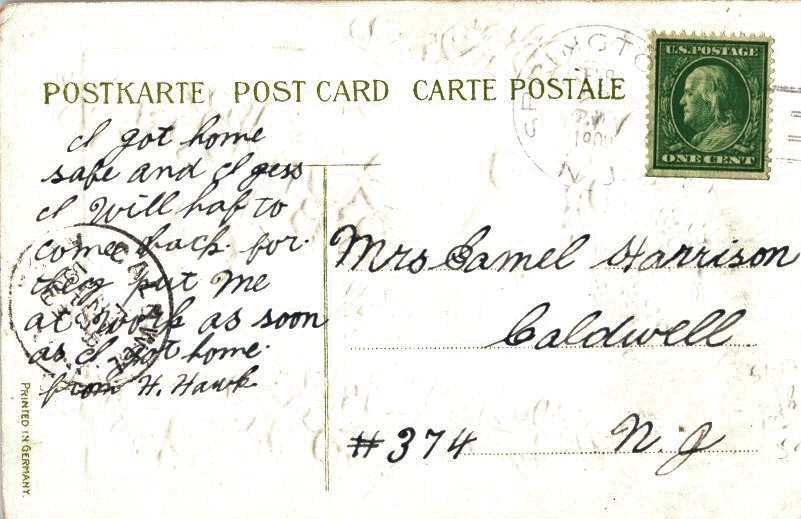 POSTKARTE POST CARD CARTE POSTALE
U.S. POSTAGE
ONE CENT
N.J.
I got home
safe and I gess
I will haf to
come back. for.
they put me
at work as soon
as I got home.
from H. Hawk
Mrs Samel Harrison
Caldwell.
#374 N. J
PRINTED IN GERMANY.